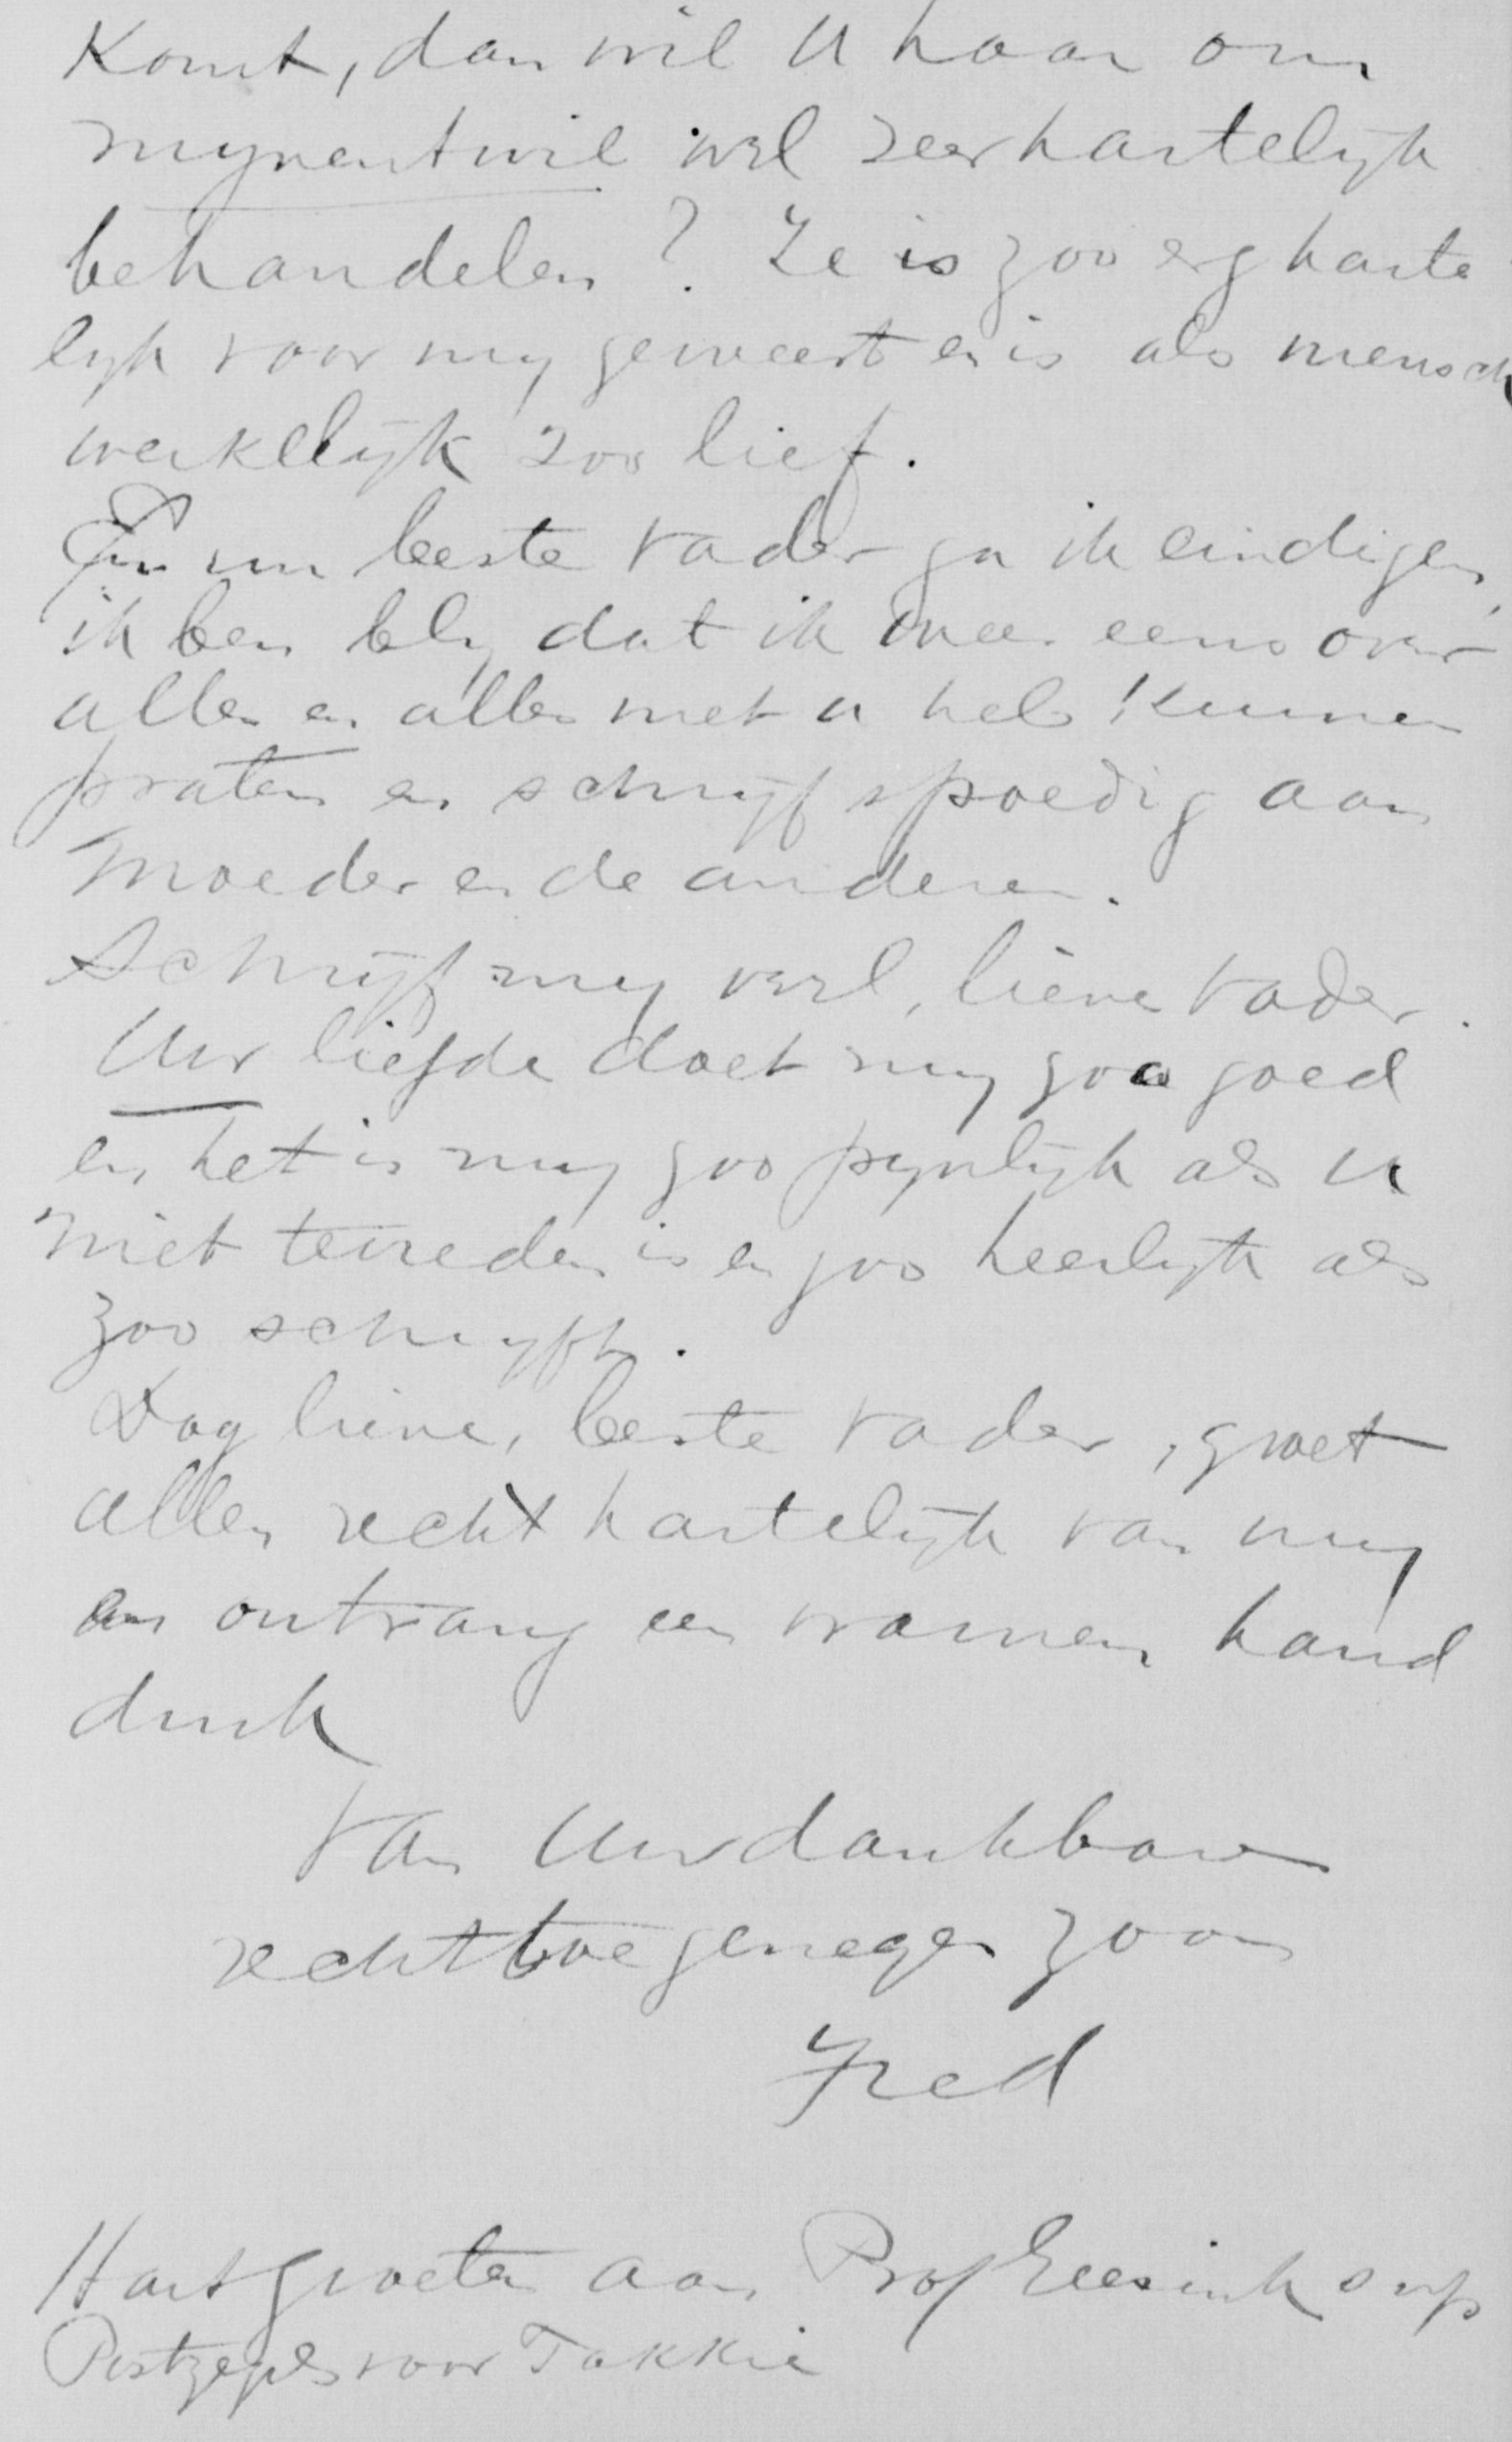 Komt, dan wil U haar om
mynentwil wel zeer hartelyk
behandelen? Ze is zoo erg harte
lyk voor my geweest en is als mensch
werkelijk zoo lief.
En nu beste Vader ga ik eindigen,
ik ben bly dat ik weer eens over
alles en alles met u heb kunnen
praten en schrijf spoedig aan
Moeder en de anderen.
Schrijf my veel, lieve Vader.
Uw liefde doet my zoo goed
en het is my zoo pynlyk als U
niet tevreden is en zoo heerlyk als
zoo schryft.
Dag lieve, beste Vader, groet
allen recht hartelyk van my
en ontvang een warmen hand
druk
Van Uw dankbaren
recht toegenegen zoon
Fred
Hart groeten aan Prof
Postzegels voor Takkie